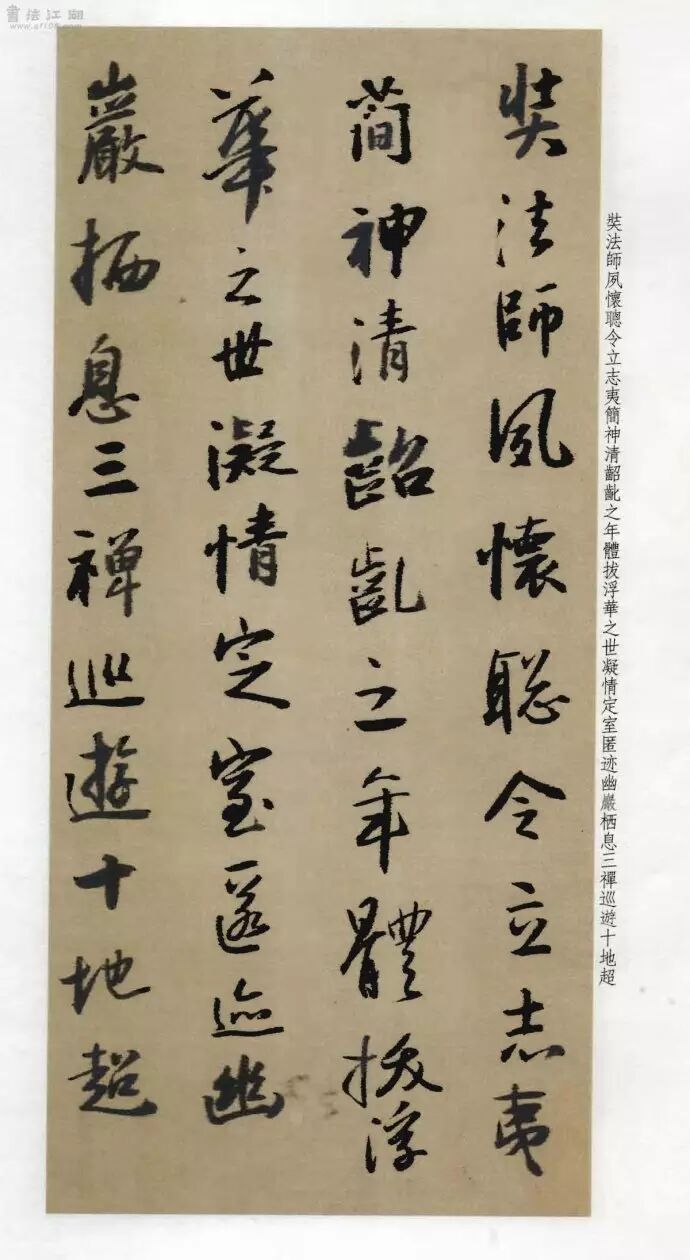 奘法師夙懷聰令立志夷簡神清齠齔之年體拔浮華之世凝情定室匿迹幽巖栖息三禪巡遊十地超
奘法師夙懷聰令立志夷
簡神清齠齔之年體拔浮
華之世凝情定室匿迹幽
巖栖息三禪巡遊十地超
書法江湖